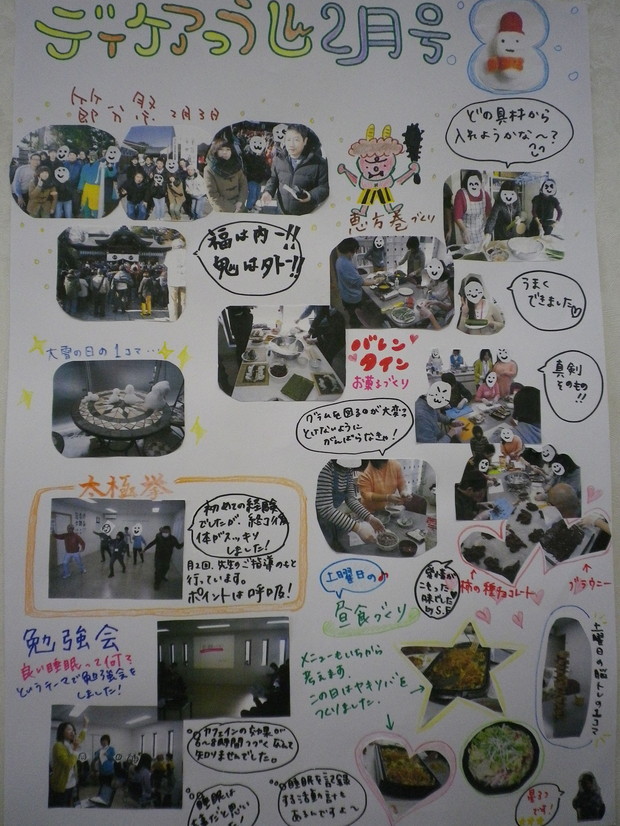 デイケアつうしん2月号
節分祭 2月3日
どの具材から
入れようかな〜?
恵方巻づくり
福は内ー!!
鬼は外ー!!
うまく
できました♡
大雪の日の1コマ…
バレン
タイン
お菓子づくり
真剣
そのもの!!
グラムを図るのが大変…
とけないように
がんばらなきゃ!
太極拳
初めての経験
でしたが、終了後
体がスッキリ
しました!
月2回、先生のご指導のもと
行っています。
ポイントは呼吸!
土曜日の♪
昼食づくり
愛情が
こもった
味でした
柿の種チョコレート
ブラウニー
勉強会
良い睡眠って何?
というテーマで勉強会を
しました!
メニューもいちから
考えます。
この日はヤキソバを
つくりました。
土曜日の脳トレの1コマ
カフェインの効果が
6〜8時間つづくなんて
知りませんでした。
睡眠を記録
する活動量計も
あるんですよ〜
睡眠は
大事だと思い
ました!
です!